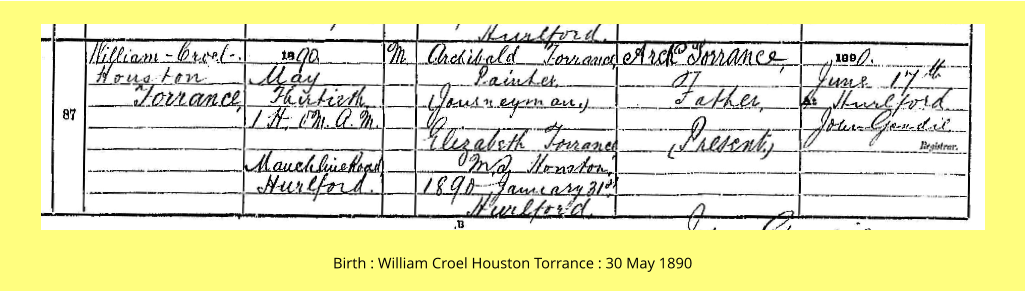 Hurlford.
87
William-Croel-
Houston
Torrance,
1890.
May
Thirtieth
1 H. 0 M. A.M.
Mauchline Road
Hurlford.
M
Archibald Torrance,
Painter
(Journeyman)
Elizabeth Torrance
M.S. Houston,
1890 January 31st
Hurlford.
Archd Torrance,
Father,
(Present)
1890.
June 17th
At Hurlford
John Gendie
Registrar.
B
Birth : William Croel Houston Torrance : 30 May 1890